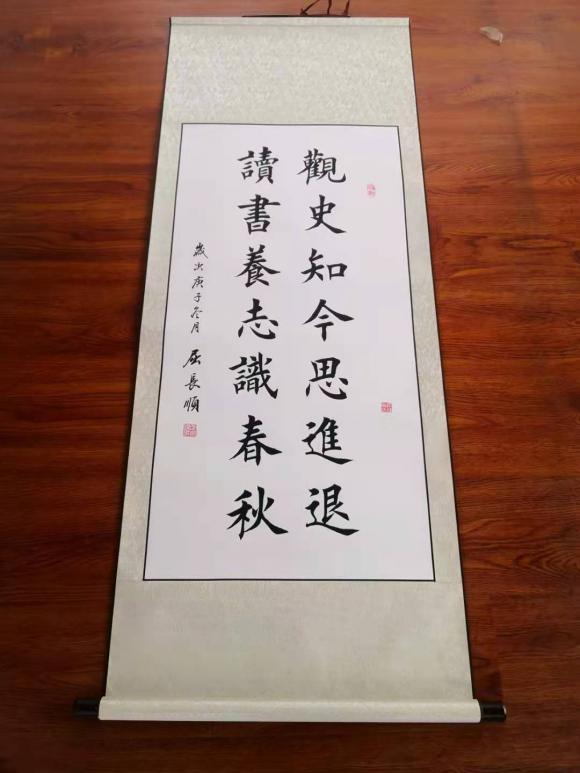 觀史知今思進退
讀書養志識春秋
歲次庚子冬月
屈長順